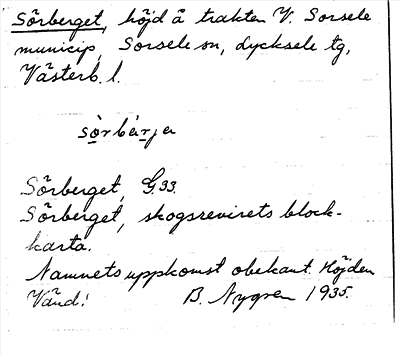 Sörberget, höjd å trakten V. Sorsele
municip, Sorsele sn, Lycksele tg,
Västerb. l.
sörbärja
Sörberget, G.33.
Sörberget, skogsrevirets block-
karta.
Namnets uppkomst obekant. Höjden
Vänd! B. Nygren 1935.